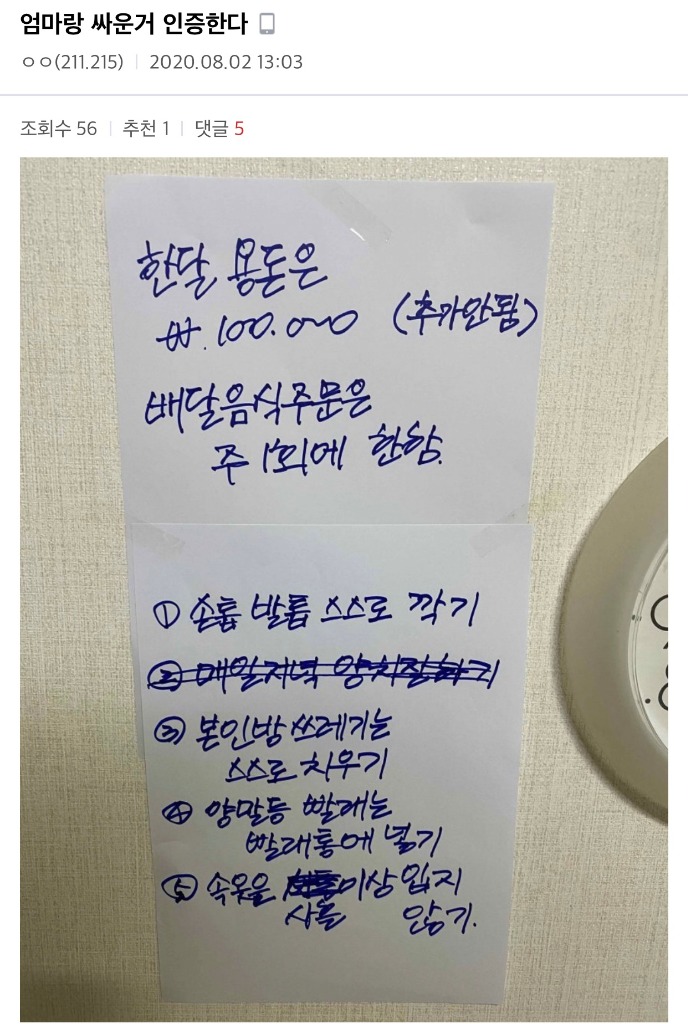 엄마랑 싸운거 인증한다
ㅇㅇ(211.215) | 2020.08.02 13:03
조회수 56 | 추천 1 | 댓글 5
한달 용돈은
₩.100.000 (추가안됨)
배달음식주문은
주 1회에 한함.
① 손톱 발톱 스스로 깍기
② 매일저녁 양치질하기
③ 본인방 쓰레기는
스스로 치우기
④ 양말등 빨래는
빨래통에 넣기
⑤ 속옷을 이상 입지
사흘 않기.